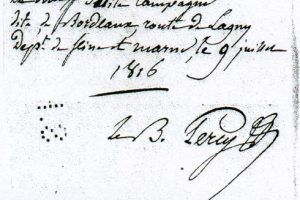 dite campagne
dite, de Bordeaux, route de Lagny
Dept. de seine et marne, le 9 juillet
1816
Le B. Percy